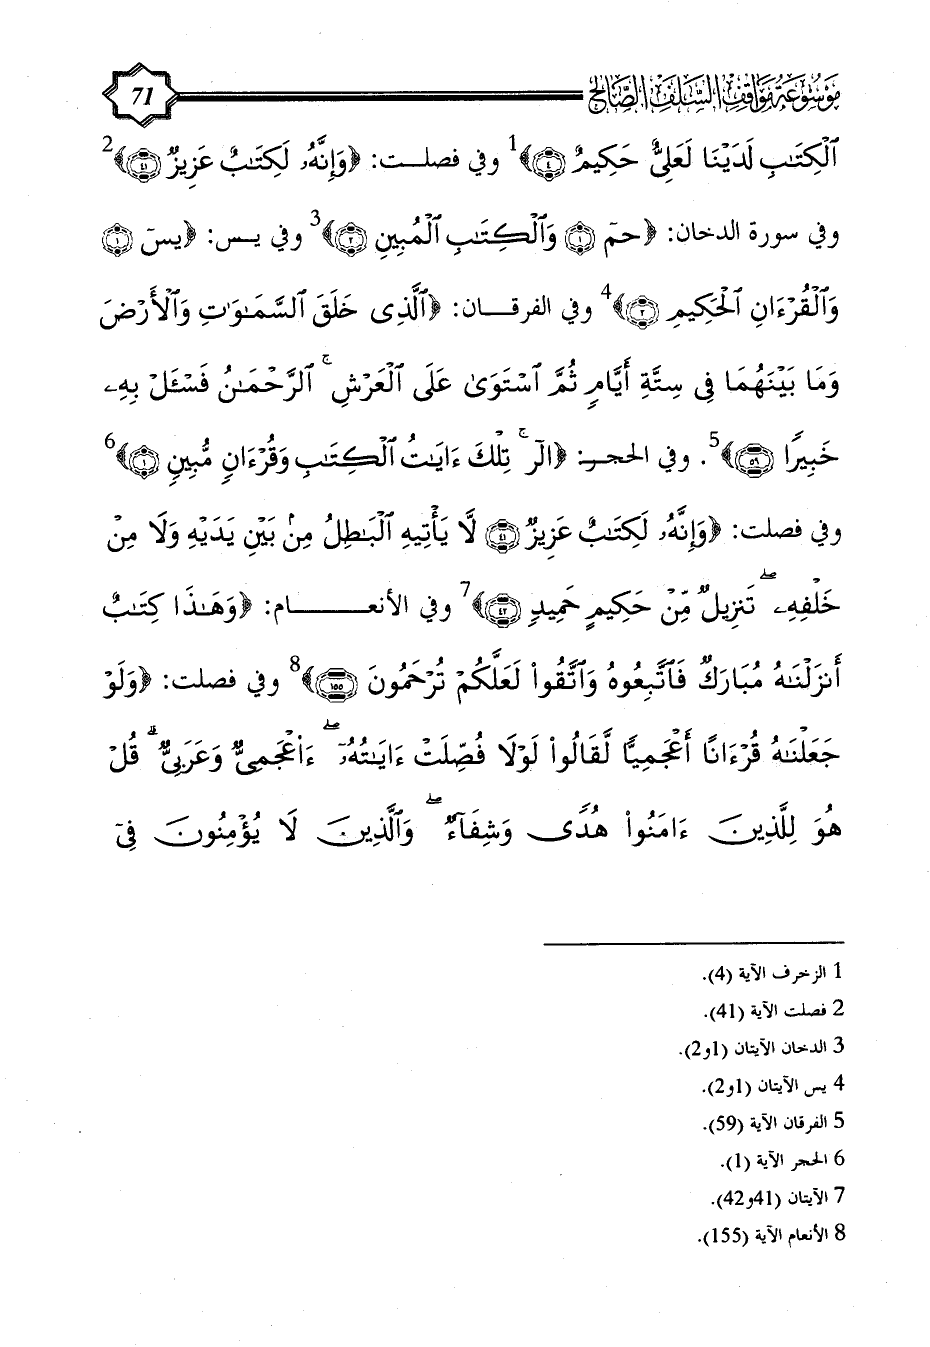 موسوعة مواقف السلف الصالح
71
ٱلۡكِتَٰبِ لَدَيۡنَا لَعَلِيٌّ حَكِيمٌ ﴿٤﴾1 وفي فصلت: ﴿وَإِنَّهُۥ لَكِتَٰبٌ عَزِيزٞ ﴿٤١﴾2
وفي سورة الدخان: ﴿حمٓ ﴿١﴾ وَٱلۡكِتَٰبِ ٱلۡمُبِينِ ﴿٢﴾3 وفي يس: ﴿يسٓ ﴿١﴾
وَٱلۡقُرۡءَانِ ٱلۡحَكِيمِ ﴿٢﴾4 وفي الفرقان: ﴿ٱلَّذِي خَلَقَ ٱلسَّمَٰوَٰتِ وَٱلۡأَرۡضَ
وَمَا بَيۡنَهُمَا فِي سِتَّةِ أَيَّامٖ ثُمَّ ٱسۡتَوَىٰ عَلَى ٱلۡعَرۡشِۚ ٱلرَّحۡمَٰنُ فَسۡـَٔلۡ بِهِۦ
خَبِيرٗا ﴿٥٩﴾5. وفي الحجر: ﴿الٓرۚ تِلۡكَ ءَايَٰتُ ٱلۡكِتَٰبِ وَقُرۡءَانٖ مُّبِينٖ ﴿١﴾6
وفي فصلت: ﴿وَإِنَّهُۥ لَكِتَٰبٌ عَزِيزٞ ﴿٤١﴾ لَّا يَأۡتِيهِ ٱلۡبَٰطِلُ مِنۢ بَيۡنِ يَدَيۡهِ وَلَا مِنۡ
خَلۡفِهِۦۖ تَنزِيلٞ مِّنۡ حَكِيمٍ حَمِيدٖ ﴿٤٢﴾7 وفي الأنعام: ﴿وَهَٰذَا كِتَٰبٌ
أَنزَلۡنَٰهُ مُبَارَكٞ فَٱتَّبِعُوهُ وَٱتَّقُواْ لَعَلَّكُمۡ تُرۡحَمُونَ ﴿١٥٥﴾8 وفي فصلت: ﴿وَلَوۡ
جَعَلۡنَٰهُ قُرۡءَانًا أَعۡجَمِيّٗا لَّقَالُواْ لَوۡلَا فُصِّلَتۡ ءَايَٰتُهُۥٓۖ ءَا۬عۡجَمِيّٞ وَعَرَبِيّٞۗ قُلۡ
هُوَ لِلَّذِينَ ءَامَنُواْ هُدٗى وَشِفَآءٞۖ وَٱلَّذِينَ لَا يُؤۡمِنُونَ فِيٓ
1 الزخرف الآية (4).
2 فصلت الآية (41).
3 الدخان الآيتان (1و2).
4 يس الآيتان (1و2).
5 الفرقان الآية (59).
6 الحجر الآية (1).
7 الآيتان (41و42).
8 الأنعام الآية (155).